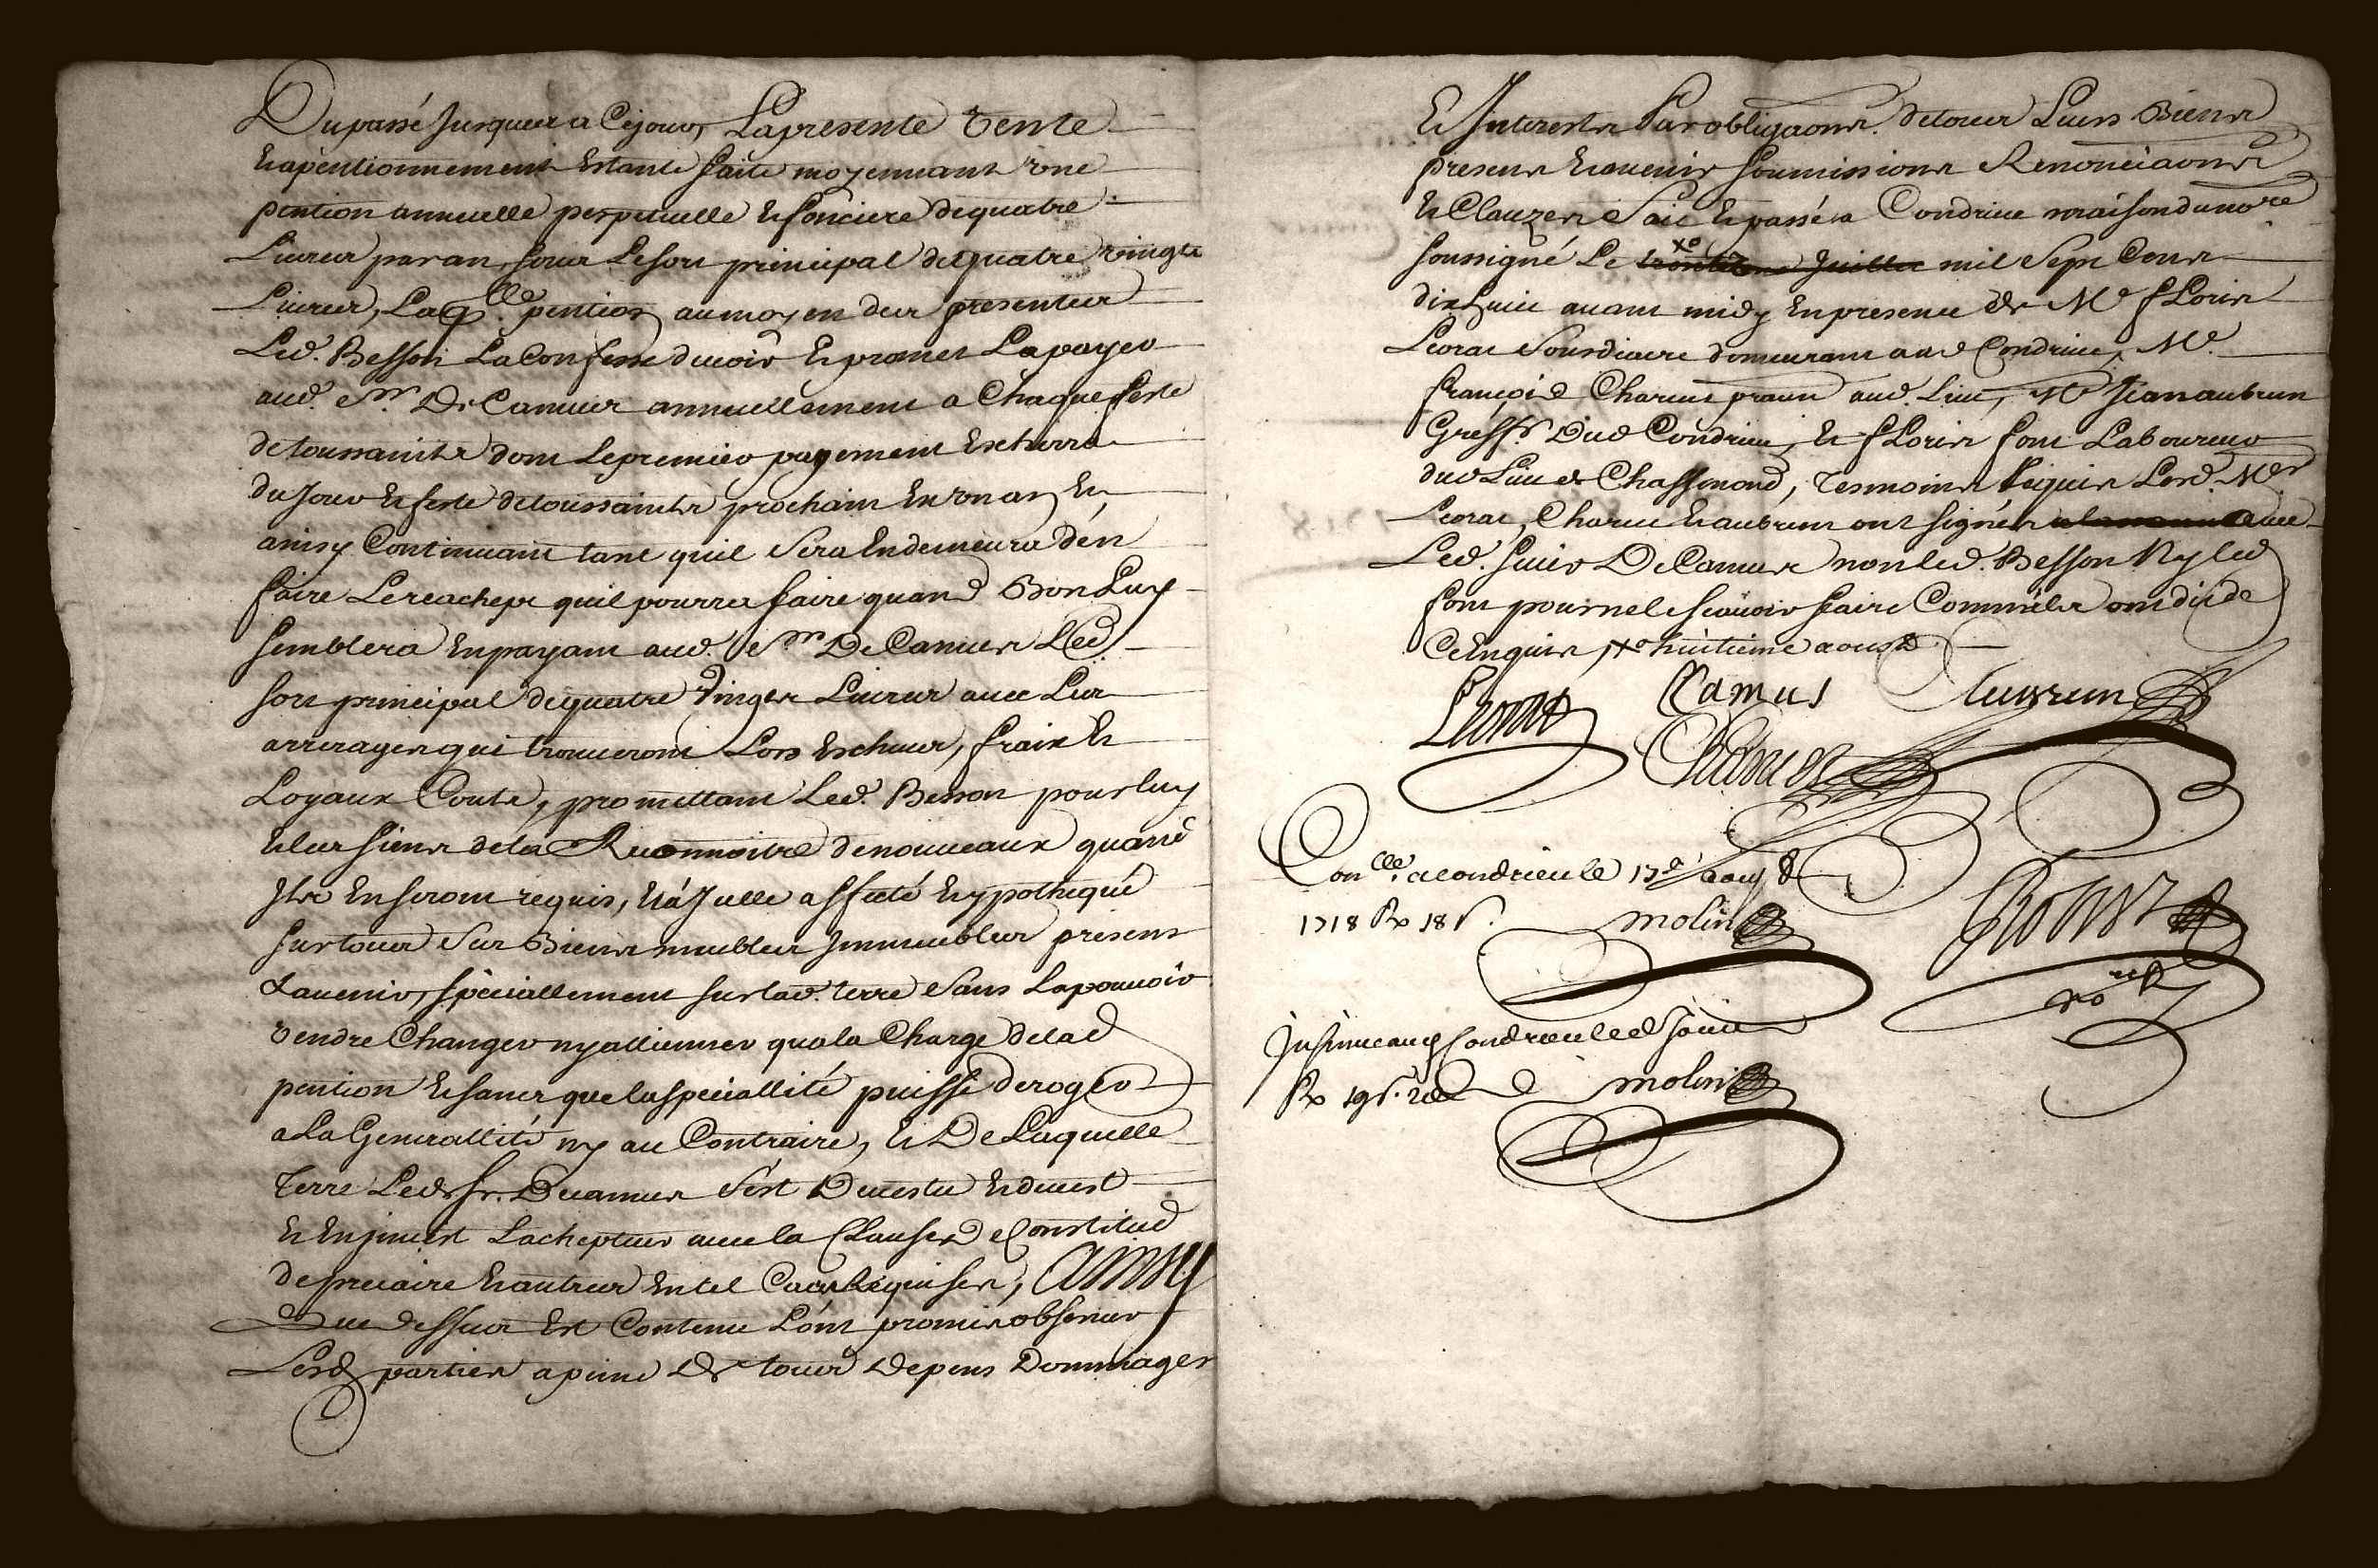 Dupassé Jusques a Cejour, Lapresente vente
Et apentionnement Estante faite moyennant une
pention annuelle perpetuelle et fonciere dequatre
Livres par an, sous Lesort principal dequatre vingts
Livres, Laq.lle pention aumoyen des presentes
Led. Besson La Confesse devoir Et promet La payer
aud. Sr. De Camus annuellement a Chaque feste
detoussaints dont Lepremier payement Escherra
du Jour et feste detoussaints prochain En un an, Et
ainsy Continuant tant quil Sera Endemeure d'en
faire Lereachept quil pourra faire quand Bon Luy
semblera Enpayant aud. Sr. De Camus Led
sort principal dequatre vingts Livres avec Les
arrerages qui trouveront Lors Escheus, fraix Et
Loyaux Couts, promettant Led. Besson pour luy
Et les siens dela Reconnoitre denouveaux quand
Ils En seront requis, Et a Icelle affecté hypothequé
surtous Ses Biens meubles Immeubles presens
& avenir, spéciallement sur lad. terre Sans La pouvoir
vendre Changer ny allienner qua la Charge de lad
pention Et sans que la speciallité puisse deroger
a La Generallité ny au Contraire, Et De Laquelle
Terre Led. Sr. De Camus S'est Devestu Et devest
Et En jnvest Lachepteur avec la Clause de Constitud
de precaire Et autres En tel Cas Requises, ainsy
Que dessus Est Contenu L'ont promis observer
Lesd parties a peine De tous Depens Dommages
Et Interests Par obligaons. detous Leurs Biens
presens Et avenir soumissions Renonciaons
Et Clauzes Fait Et passé a Condrieu maison du no.re
soussigné Le xo juillet mil Sept Cents
dixhuit avant midy En presence de Me. fLoris
Leorat Sousdiacre demeurant aud Condrieu, Me.
françois Charvet praen aud. Lieu, Me Jean aubrun
Greff.r Dud Condrieu, Et fLoris font Laboureur
dud Lieu de Chassenoud, Tesmoins Requis Lesd. Mes
Leorat, Charvet Et aubrun ont signés avec
Led. sieur De Camus non led. Besson Ny led
font pour ne le scavoir faire Comme ils ont dit de
Ce Enquis, xo huitieme aoust
Leorat Camus Aubrun
Charvet
Con.lle a condrieu le 17e aoust
1718 Rx 18 s. molin
xo
jnsinue aud Condrieu led jour
Rx 19 s. molin